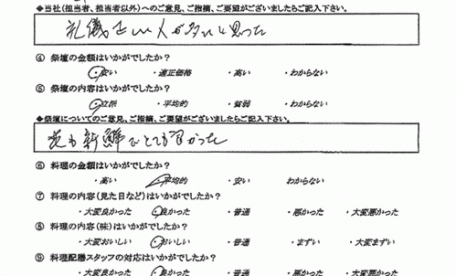 ◆当社(担当者、担当者以外)へのご意見、ご指摘、ご要望がございましたらご記入下さい。
礼儀正しい人が多いと思った
④ 祭壇の金額はいかがでしたか?
・安い ・適正価格 ・高い ・わからない
⑤ 祭壇の内容はいかがでしたか?
・立派 ・平均的 ・貧弱 ・わからない
◆祭壇についてのご意見、ご指摘、ご要望がございましたらご記入下さい。
花も新鮮でとても良かった
⑥ 料理の金額はいかがでしたか?
・高い ・平均的 ・安い わからない
⑦ 料理の内容(見た目など)はいかがでしたか?
・大変良かった ・良かった ・普通 ・悪かった ・大変悪かった
⑧ 料理の内容(味)はいかがでしたか?
・大変おいしい ・おいしい ・普通 ・まずい ・大変まずい
⑨ 料理配膳スタッフの対応はいかがでしたか?
・大変良かった ・良かった ・普通 ・悪かった ・大変悪かった